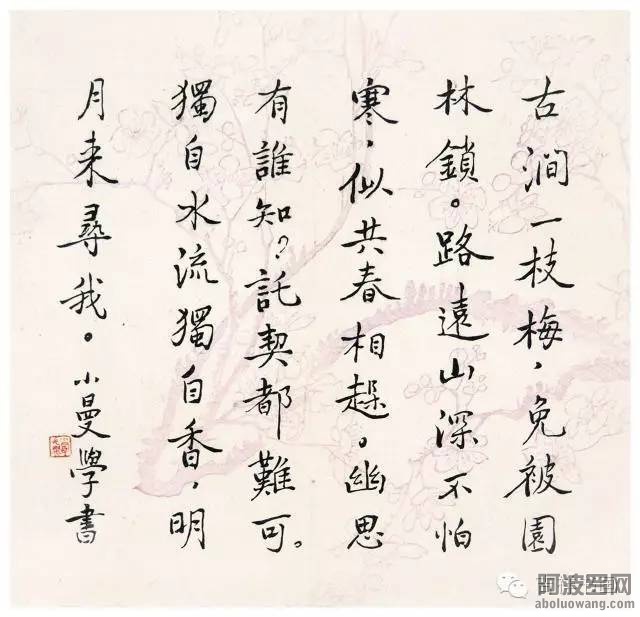 古澗一枝梅，免被園
林鎖。路遠山深不怕
寒，似共春相趓。幽思
有誰知？託契都難可。
獨自水流獨自香，明
月来尋我。小曼學書
阿波罗网
aboluowang.com